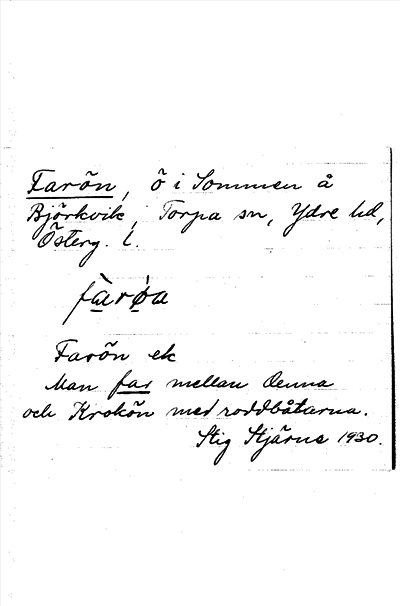 Farön, ö i Sommen å
Björkvik, Torpa sn, Ydre hd,
Österg. l.
fàrø̀a
Farön ek
Man far mellan denna
och Krokön med roddbåtarna.
Stig Stjärne 1930.